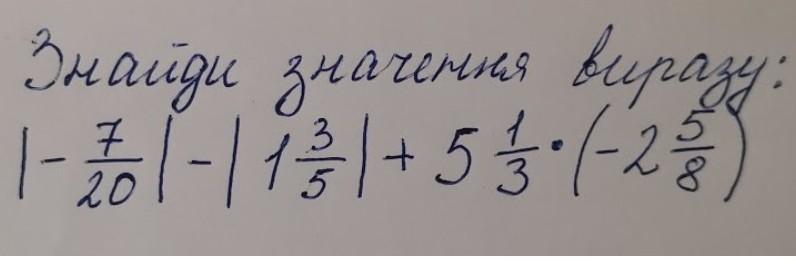 Знайди значення виразу:
|- 7/20| - |1 3/5| + 5 1/3 · (-2 5/8)